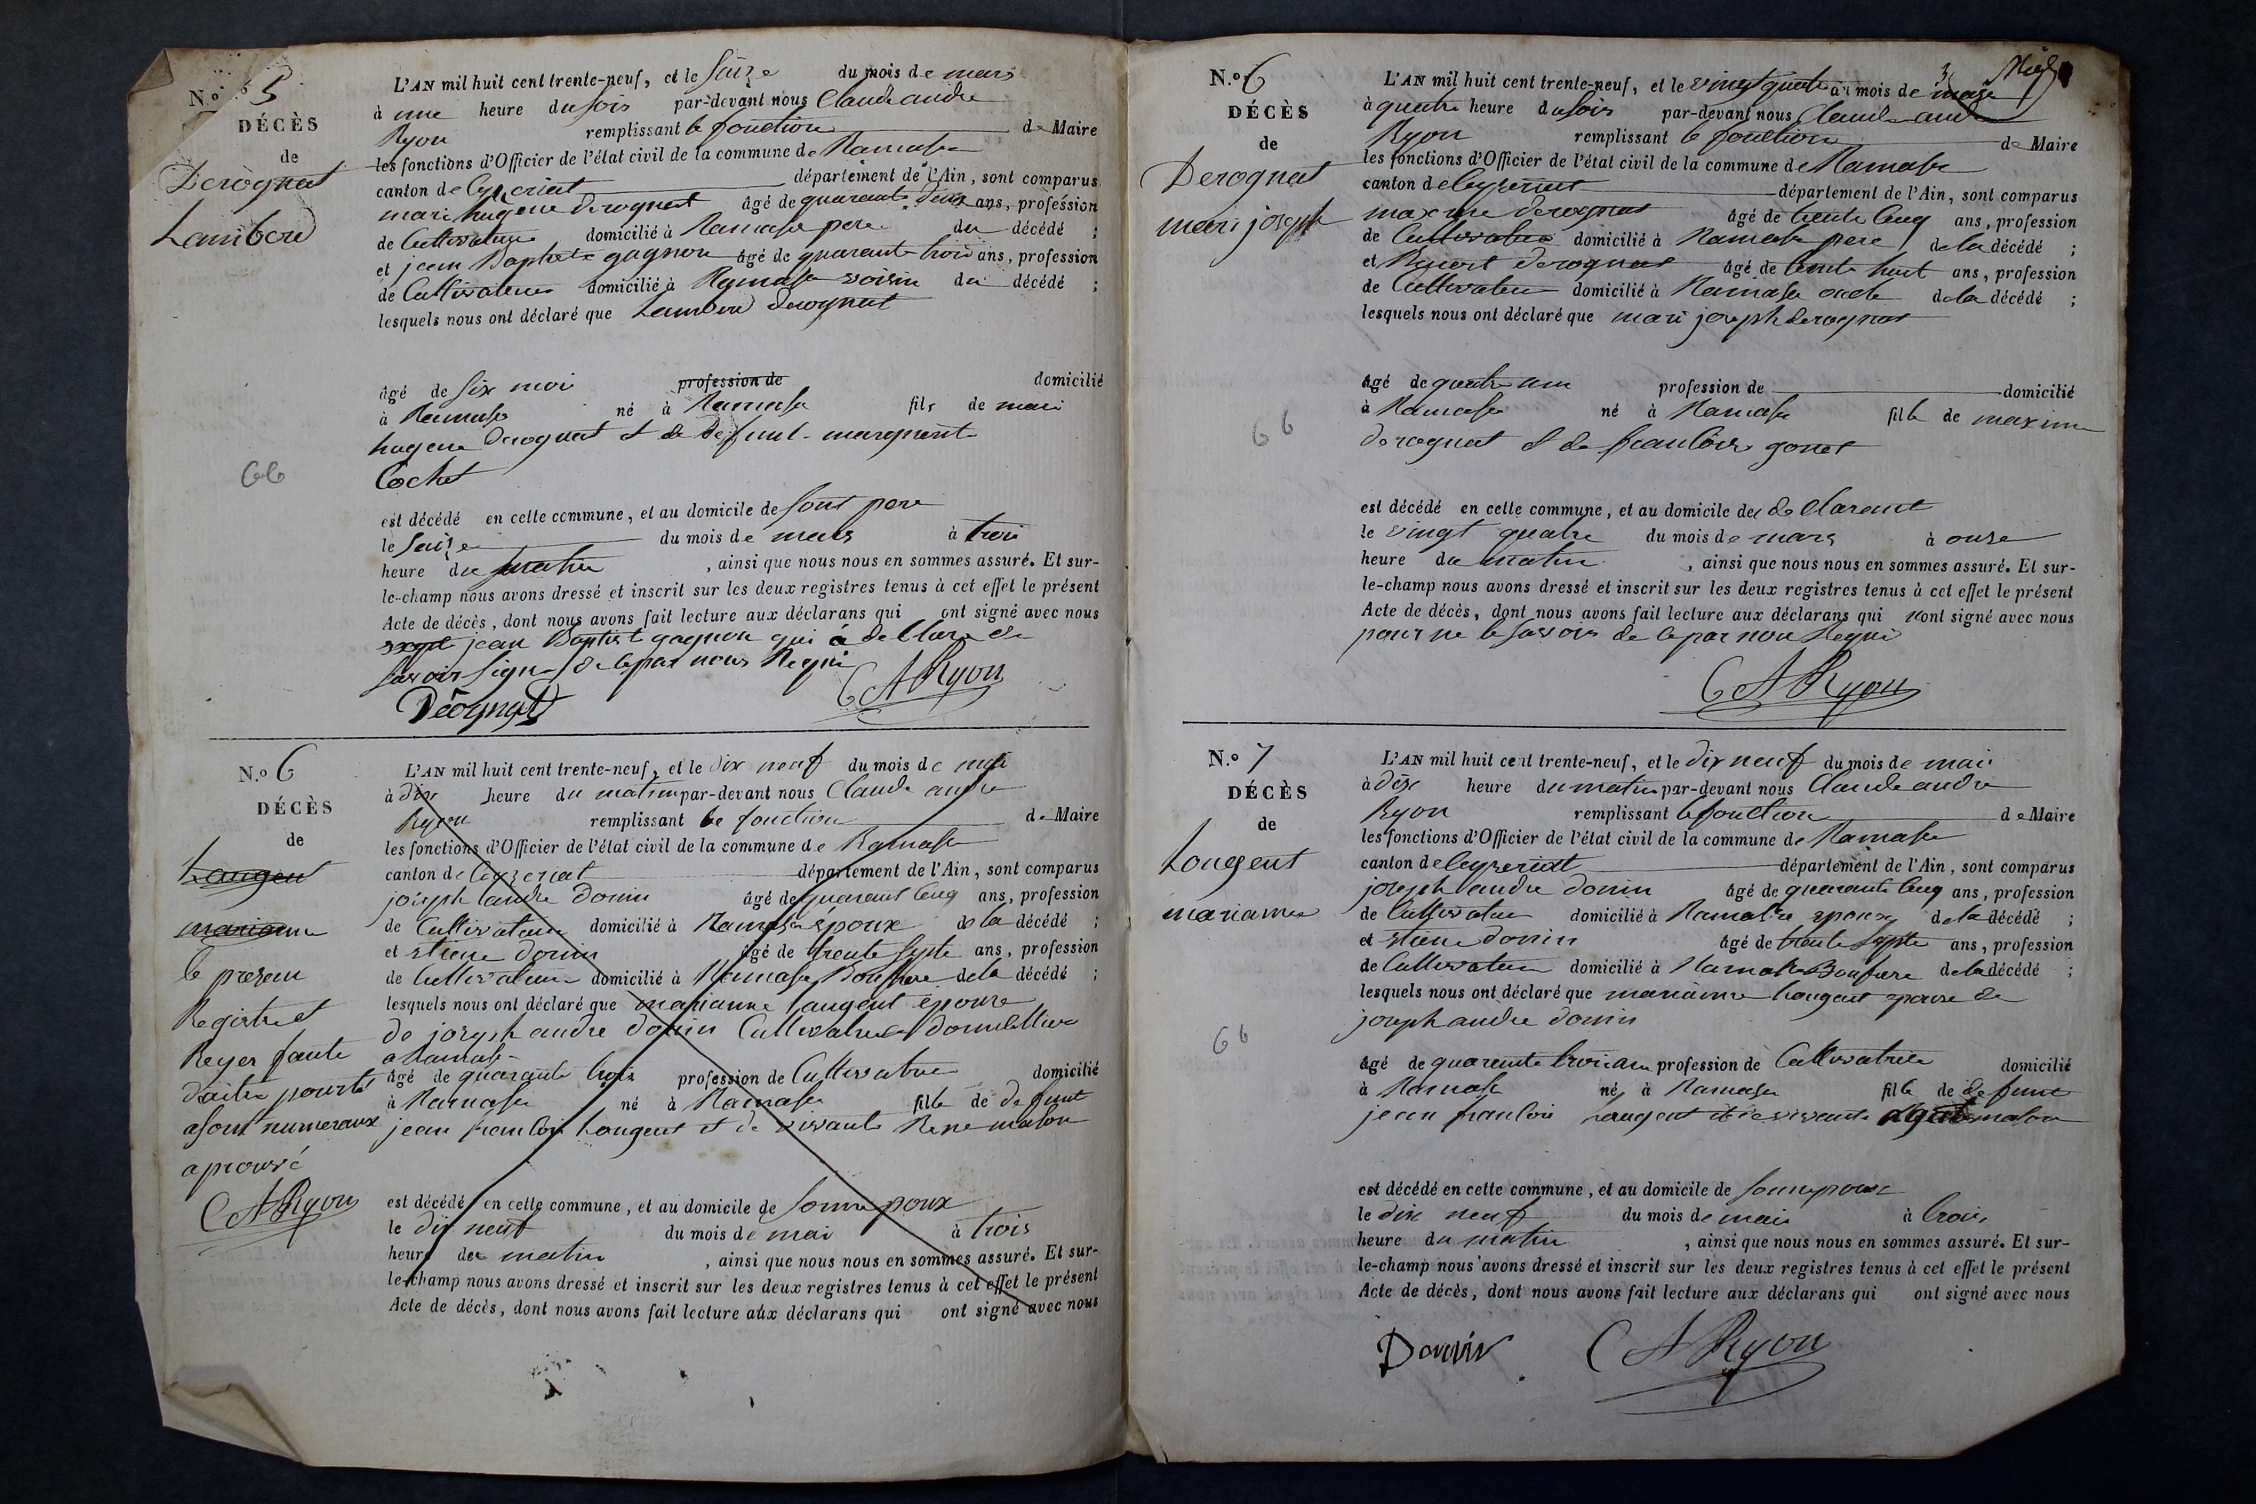 N.º 5
DÉCÈS
de
Derognat
Lambere
L'AN mil huit cent trente-neuf, et le saize du mois de mars
à une heure du soir par-devant nous Claude andre
Ryon remplissant le fonction de Maire
les fonctions d'Officier de l'état civil de la commune de Ramasse
canton de Ceyzeriat département de l'Ain, sont comparus
mari hugene derognat âgé de quarente deux ans, profession
de Cultivateur domicilié à Ramasse pere du décédé ;
et jean Baptiste gagnon âgé de quarante trois ans, profession
de Cultivateur domicilié à Ramasse voisin du décédé ;
lesquels nous ont déclaré que Lambere derognat
âgé de six moi profession de domicilié
à Ramasse né à Ramasse fils de mari
hugene derognat et de defunt marguerite
Cochet
est décédé en cette commune, et au domicile de sont pere
le saize du mois de mars à troi
heure du matin , ainsi que nous nous en sommes assuré. Et sur-
le-champ nous avons dressé et inscrit sur les deux registres tenus à cet effet le présent
Acte de décès, dont nous avons fait lecture aux déclarans qui ont signé avec nous
jean Baptist gagnon qui à de Clare ne
savoir signe de ce par nous Requi
Déognat CA Ryon
66
N.º 6
DÉCÈS
de
Laugent
marianne
le presen
Registre et
Reyer faute
daitre pourté
a sont numeraux
aprouvé
CA Ryon
L'AN mil huit cent trente-neuf, et le dix neuf du mois de mai
à dix heure du matin par-devant nous Claude andre
Ryon remplissant le fonction de Maire
les fonctions d'Officier de l'état civil de la commune de Ramasse
canton de Ceyzeriat département de l'Ain, sont comparus
joseph andre donin âgé de quarant Cinq ans, profession
de Cultivateur domicilié à Ramasse époux de la décédé ;
et etiene donin âgé de trente septe ans, profession
de Cultivateur domicilié à Ramasse Boufrere de la décédé ;
lesquels nous ont déclaré que marianne Laugent épouse
de joseph andre donin Cultivatre domicillier
a Ramasse
âgé de quarante trois profession de Cultivatrice domicilié
à Ramasse né à Ramasse fille de defunt
jean francois Lougent et de vivante Rene mason
est décédé en cette commune, et au domicile de sonne poux
le dix neuf du mois de mai à trois
heure du matin , ainsi que nous nous en sommes assuré. Et sur-
le-champ nous avons dressé et inscrit sur les deux registres tenus à cet effet le présent
Acte de décès, dont nous avons fait lecture aux déclarans qui ont signé avec nous
N.º 6
DÉCÈS
de
Derognat
mari joseph
L'AN mil huit cent trente-neuf, et le vingt quatre du mois de mars
à quatre heure du soir par-devant nous Claude andre
Ryon remplissant le fonction de Maire
les fonctions d'Officier de l'état civil de la commune de Ramasse
canton de Ceyzeriat département de l'Ain, sont comparus
maxime derognat âgé de trente Cinq ans, profession
de Cultivateur domicilié à Ramasse pere de la décédé ;
et Benoit derognat âgé de trente huit ans, profession
de Cultivateur domicilié à Ramasse oncle de la décédé ;
lesquels nous ont déclaré que mari joseph derognat
âgé de quatre ans profession de domicilié
à Ramasse né à Ramasse fille de maxime
derognat et de francoise gonet
est décédé en cette commune, et au domicile des declarent
le vingt quatre du mois de mars à onze
heure du matin , ainsi que nous nous en sommes assuré. Et sur-
le-champ nous avons dressé et inscrit sur les deux registres tenus à cet effet le présent
Acte de décès, dont nous avons fait lecture aux déclarans qui nont signé avec nous
pour ne le savoir de ce par nou Requi
CA Ryon
66
N.º 7
DÉCÈS
de
Lougent
marianne
L'AN mil huit cent trente-neuf, et le dix neuf du mois de mai
à dix heure du matin par-devant nous Claude andre
Ryon remplissant le fonction de Maire
les fonctions d'Officier de l'état civil de la commune de Ramasse
canton de Ceyzeriat département de l'Ain, sont comparus
joseph andre donin âgé de quarante Cinq ans, profession
de Cultivateur domicilié à Ramasse epoux de la décédé ;
et etiene donin âgé de trente septe ans, profession
de Cultivateur domicilié à Ramasse Boufrere de la décédé ;
lesquels nous ont déclaré que marianne Lougent epouse de
joseph andre donin
âgé de quarente trois an profession de Cultivatrice domicilié
à Ramasse né à Ramasse fille de defunt
jean francois Laugent et de vivante mason
est décédé en cette commune, et au domicile de sonnepoux
le dix neuf du mois de mai à trois
heure du matin , ainsi que nous nous en sommes assuré. Et sur-
le-champ nous avons dressé et inscrit sur les deux registres tenus à cet effet le présent
Acte de décès, dont nous avons fait lecture aux déclarans qui ont signé avec nous
Donin CA Ryon
66